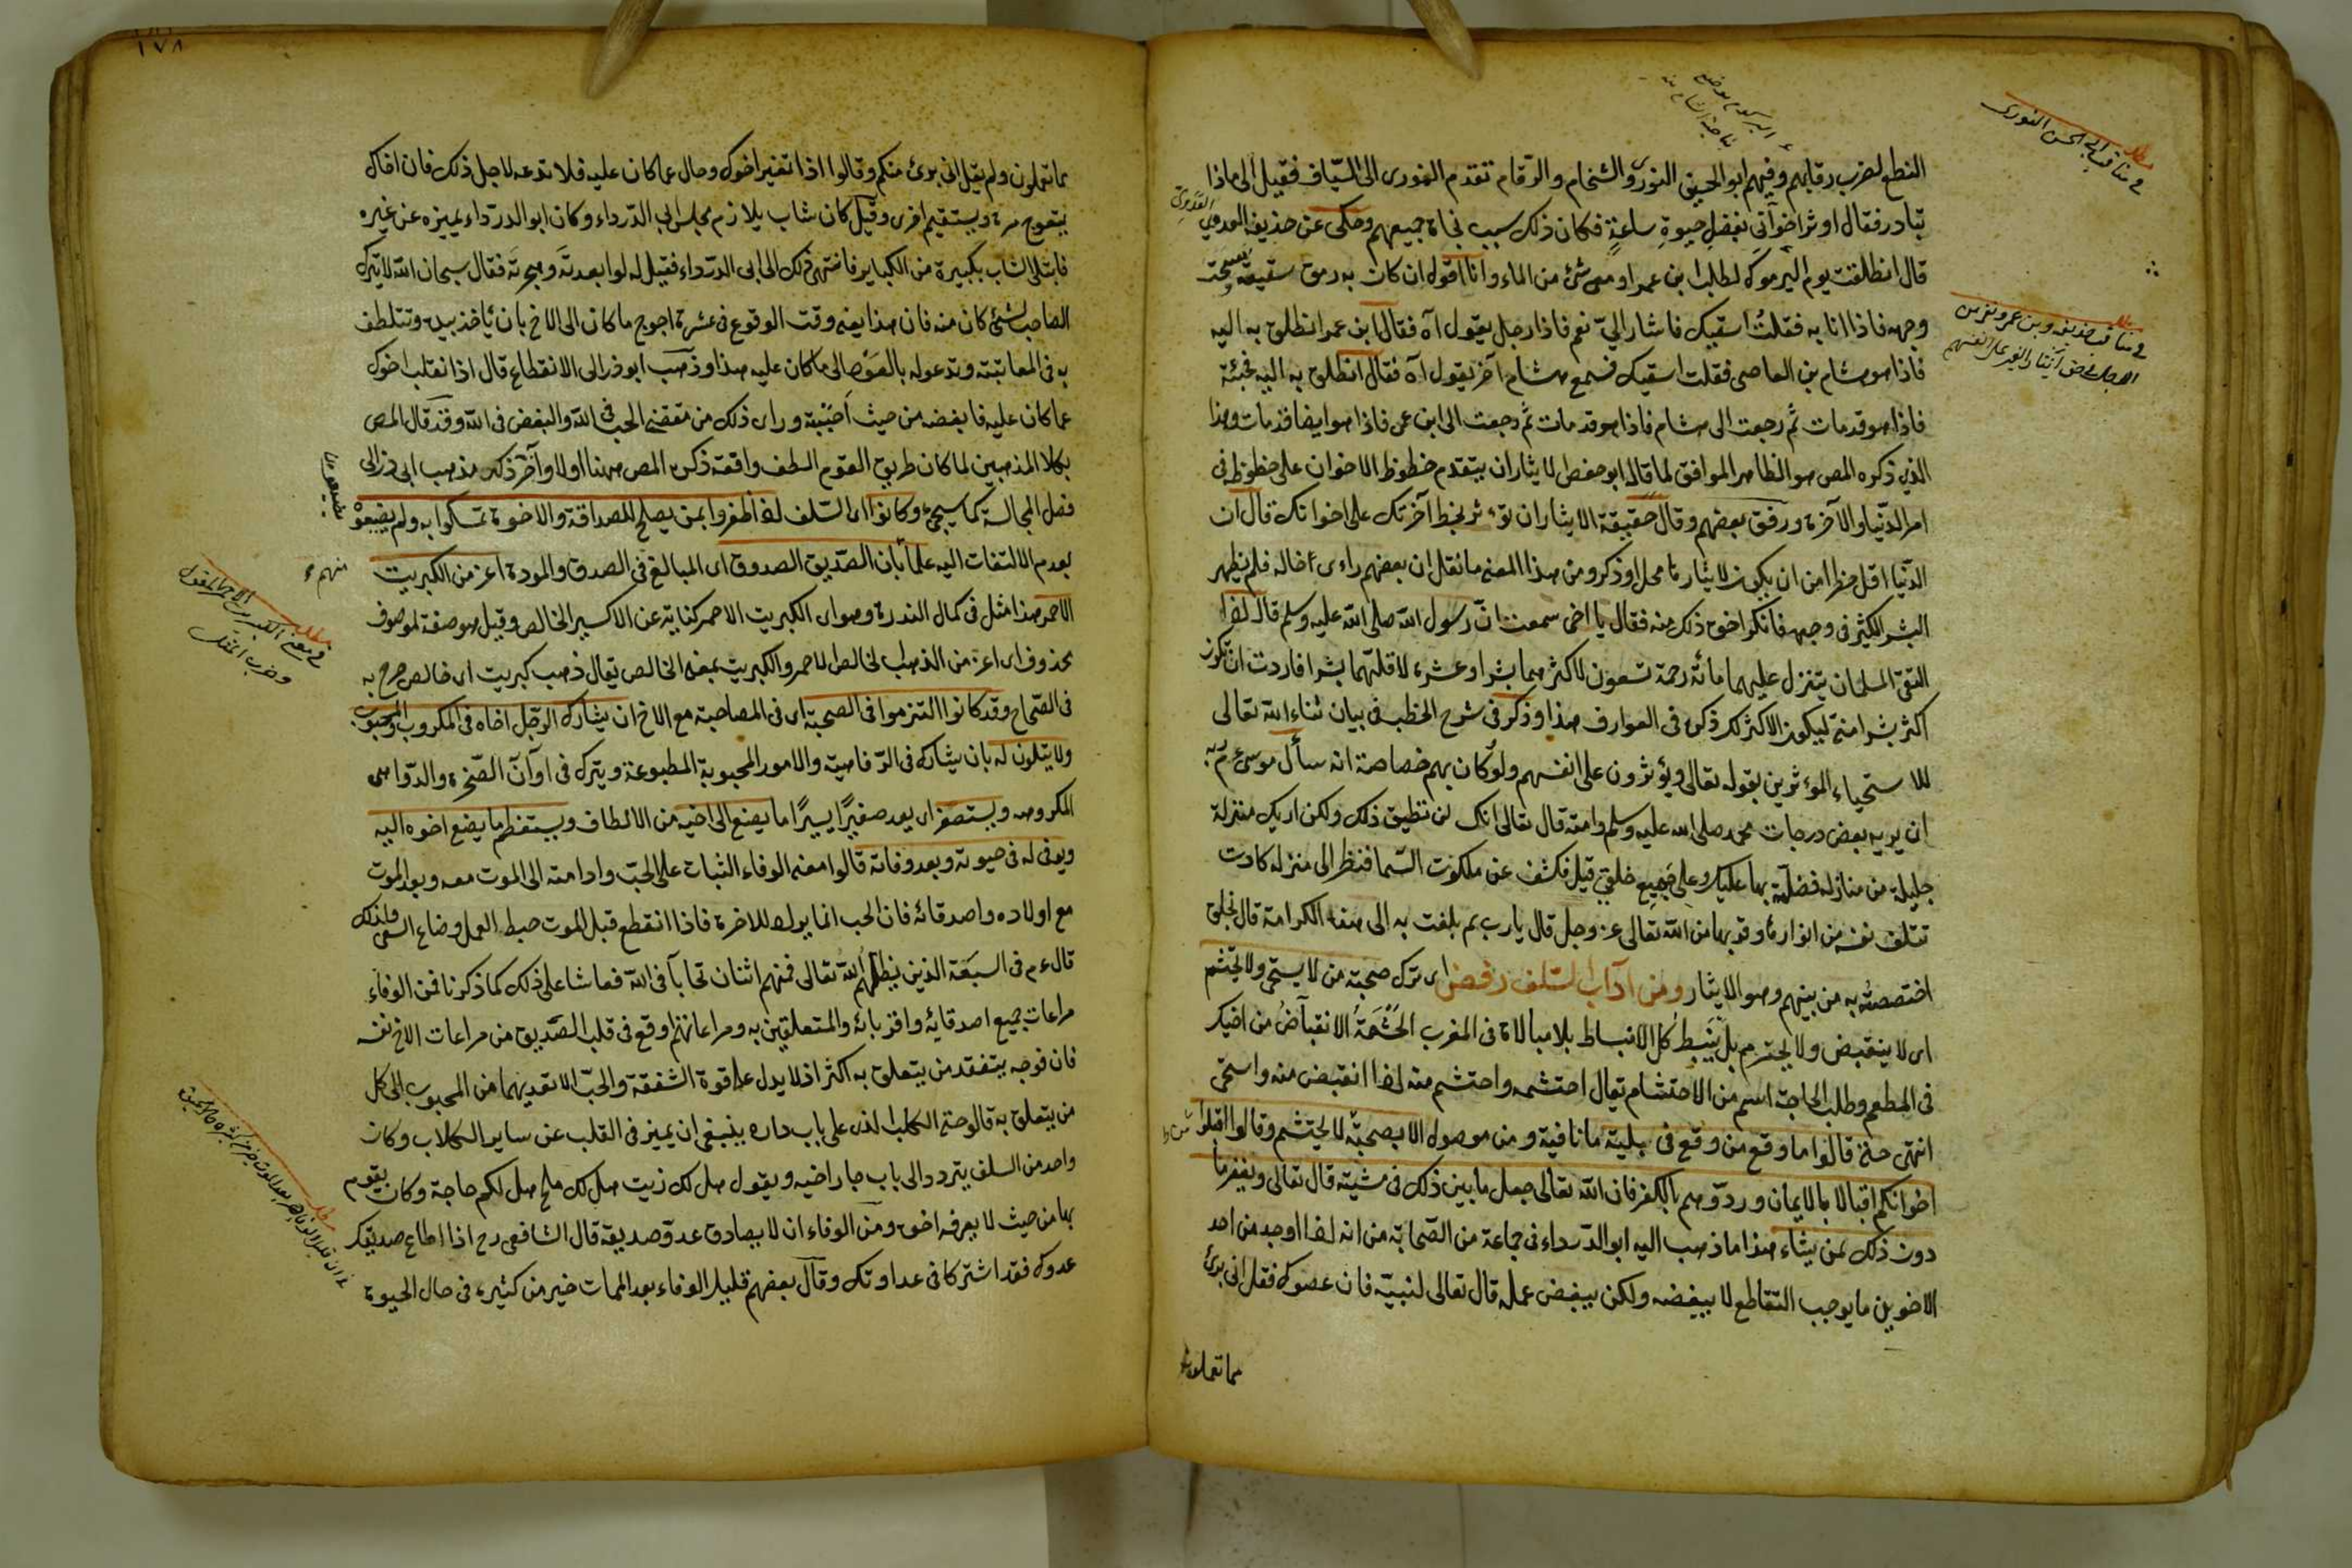 النطع لضرب رقابهم وفيهم ابو الحسين النوري والشحام والرقام تقدم النوري الى السياف فقيل الى ماذا
تبادر فقال اوثر اخواني بفضل حيوة ساعة فكان ذلك سبب نجاة جميعهم وحكى عن حذيفة العدوي
قال انطلقت يوم اليرموك لطلب ابن عم لي ومعي شئ من الماء وانا اقول ان كان به رمق سقيته ومسحت
وجهه فاذا انا به فقلت اسقيك فاشار الي نعم فاذا رجل يقول آه فقال ابن عمي انطلق به اليه
فاذا هو هشام بن العاصي فقلت اسقيك فسمع هشام آخر يقول آه فقال انطلق به اليه فجئته
فاذا هو قد مات ثم رجعت الى هشام فاذا هو قد مات ثم رجعت الى ابن عمي فاذا هو ايضا قد مات وهذا
الذي ذكره المص هو الظاهر الموافق لما قاله ابو حفص الايثار ان يتقدم حظوظ الاخوان على حظوظه في
امر الدنيا والآخرة ورفق بعضهم وقال حقيقة الايثار ان تؤثر بحظ آخرتك على اخوانك قال ان
الدنيا اقل خطرا من ان يكون لايثارها محل او ذكر ومن هذا المعنى ما نقل ان بعضهم رأى اخا له فلم يظهر
البشر الكثير في وجهه فانكر اخوه ذلك منه فقال يا اخي سمعت ان رسول الله صلى الله عليه وسلم قال اذا
التقى المسلمان يتنزل عليهما مائة رحمة تسعون لاكثرهما بشرا وعشرة لاقلهما بشرا فاردت ان تكون
اكثر بشرا مني ليكون الاكثر لك ذكره في العوارف هذا وذكر في شرح الخطب في بيان ثناء الله تعالى
للاستحياء المؤثرين بقوله تعالى ويؤثرون على انفسهم ولو كان بهم خصاصة انه سأل موسى عم ربه
ان يريه بعض درجات محمد صلى الله عليه وسلم وامته قال تعالى انك لن تطيق ذلك ولكن اريك منزلة
جليلة من منازله فضلته بها عليك وعلى جميع خلقي قيل فكشف عن ملكوت السما فنظر الى منزلة كادت
تتلف نفسه من انوارها وقربها من الله تعالى عز وجل قال يا رب بم بلغت به الى هذه الكرامة قال بخلق
اختصصته به من بينهم وهو الايثار ومن آداب السلف رفض اى ترك صحبة من لا يستحي ولا يحتشم
اى لا ينقبض ولا يحترم بل ينبسط كل الانبساط بلا مبالاة في المغرب الحشمة الانقباض من اخيك
في المطعم وطلب الحاجة اسم من الاحتشام يقال احتشمه واحتشم منه اذا انقبض منه واستحى
انتهى حتى قالوا ما وقع من وقع في بلية ما نافية ومن موصولة الا بصحبة من لا يحتشم وقالوا اقبلوا
اخوانكم اقبالا بالايمان وردوهم بالكفر فان الله تعالى جعل ما بين ذلك في مشيته قال تعالى ويغفر ما
دون ذلك لمن يشاء هذا ما ذهب اليه ابو الدرداء في جماعة من الصحابة من انه اذا وجد من احد
الاخوين ما يوجب التقاطع لا يبغضه ولكن يبغض عمله قال تعالى لنبيه فان عصوك فقل انى برئ
مما تعملون
في مناقب ابي الحسن النوري
١٧٨
مما تعملون ولم يقل انى برئ منكم وقالوا اذا تغير اخوك وحال عما كان عليه فلا تدعه لاجل ذلك فان اخاك
يتعوج مرة ويستقيم اخرى وقيل كان شاب يلازم مجلس ابي الدرداء وكان ابو الدرداء يميزه عن غيره
فابتلى الشاب بكبيرة من الكباير فانتهى ذلك الى ابي الدرداء فقيل له لو ابعدته وهجرته فقال سبحان الله لا يترك
الصاحب لشئ كان منه فان هذا يعنى وقت الوقوع في عثرة احوج ما كان الى الاخ بان يأخذ بيده وتتلطف
به في المعاتبة وتدعو له بالعود الى ما كان عليه هذا وذهب ابو ذر الى الانقطاع قال اذا انقلب اخوك
عما كان عليه فابغضه من حيث احببته ورأى ذلك من مقتضى الحب في الله والبغض في الله وقد قال المص
بكلا المذهبين لما كان طريق القوم الطف واقعة ذكره المص ههنا اولا وآخر ذلك مذهب ابي ذر الى
فصل المجالسة كما سيجئ وكانوا اى السلف اذا ظفروا بمن يصلح للصداقة والاخوة تمسكوا به ولم يضيعوه
بعدم الالتفات اليه علما بان الصديق الصدوق اى المبالغ في الصدق والمودة اعز من الكبريت
الاحمر هذا مثل في كمال الندرة وهو اى الكبريت الاحمر كناية عن الاكسير الخالص وقيل هو صفة لموصوف
محذوف اى اعز من الذهب الخالص الاحمر والكبريت بمعنى الخالص يقال ذهب كبريت اى خالص صرح به
في الصحاح وقد كانوا التزموا في الصحبة اى في المصاحبة مع الاخ ان يشارك الرجل اخاه في المكروب والمحبوب
ولا يتلون له بان يشارك في الرفاهية والامور المحبوبة المطبوعة ويترك في اوان الصخرة والدواهى
المكروهه ويستصغر اى يعد صغيرا يسيرا ما يصنع الى اخيه من الالطاف ويستعظم ما يصنع اخوه اليه
ويوفى له في حيوته وبعد وفاته قالوا معنى الوفاء الثبات على الحب وادامته الى الموت معه وبعد الموت
مع اولاده واصدقائه فان الحب انما يراد للاخرة فاذا انقطع قبل الموت حبط العمل وضاع السعى ولذلك
قال ءم في السبعة الذين يظلهم الله تعالى فمنهم اثنان تحابا في الله فعاشا على ذلك كما ذكرنا فمن الوفاء
مراعات جميع اصدقائه واقربائه والمتعلقين به ومراعاتهم اوقع في قلب الصديق من مراعات الاخ نفسه
فان فرحه بتفقد من يتعلق به اكثر اذ لا يدل على قوة الشفقة والحب الا تعديهما من المحبوب الى كل
من يتعلق به قالو حتى الكلب الذى على باب داره ينبغى ان يميز في القلب عن ساير الكلاب وكان
واحد من السلف يتردد الى باب جار اخيه ويقول هل لك زيت هل لك ملح هل لكم حاجة وكان يقوم
بها من حيث لا يعرفه اخوه ومن الوفاء ان لا يصادق عدو صديقه قال الشافعى رح اذا اطاع صديقك
عدوك فقد اشتركا في عداوتك وقال بعضهم قليل الوفاء بعد الممات خير من كثيره في حال الحيوة